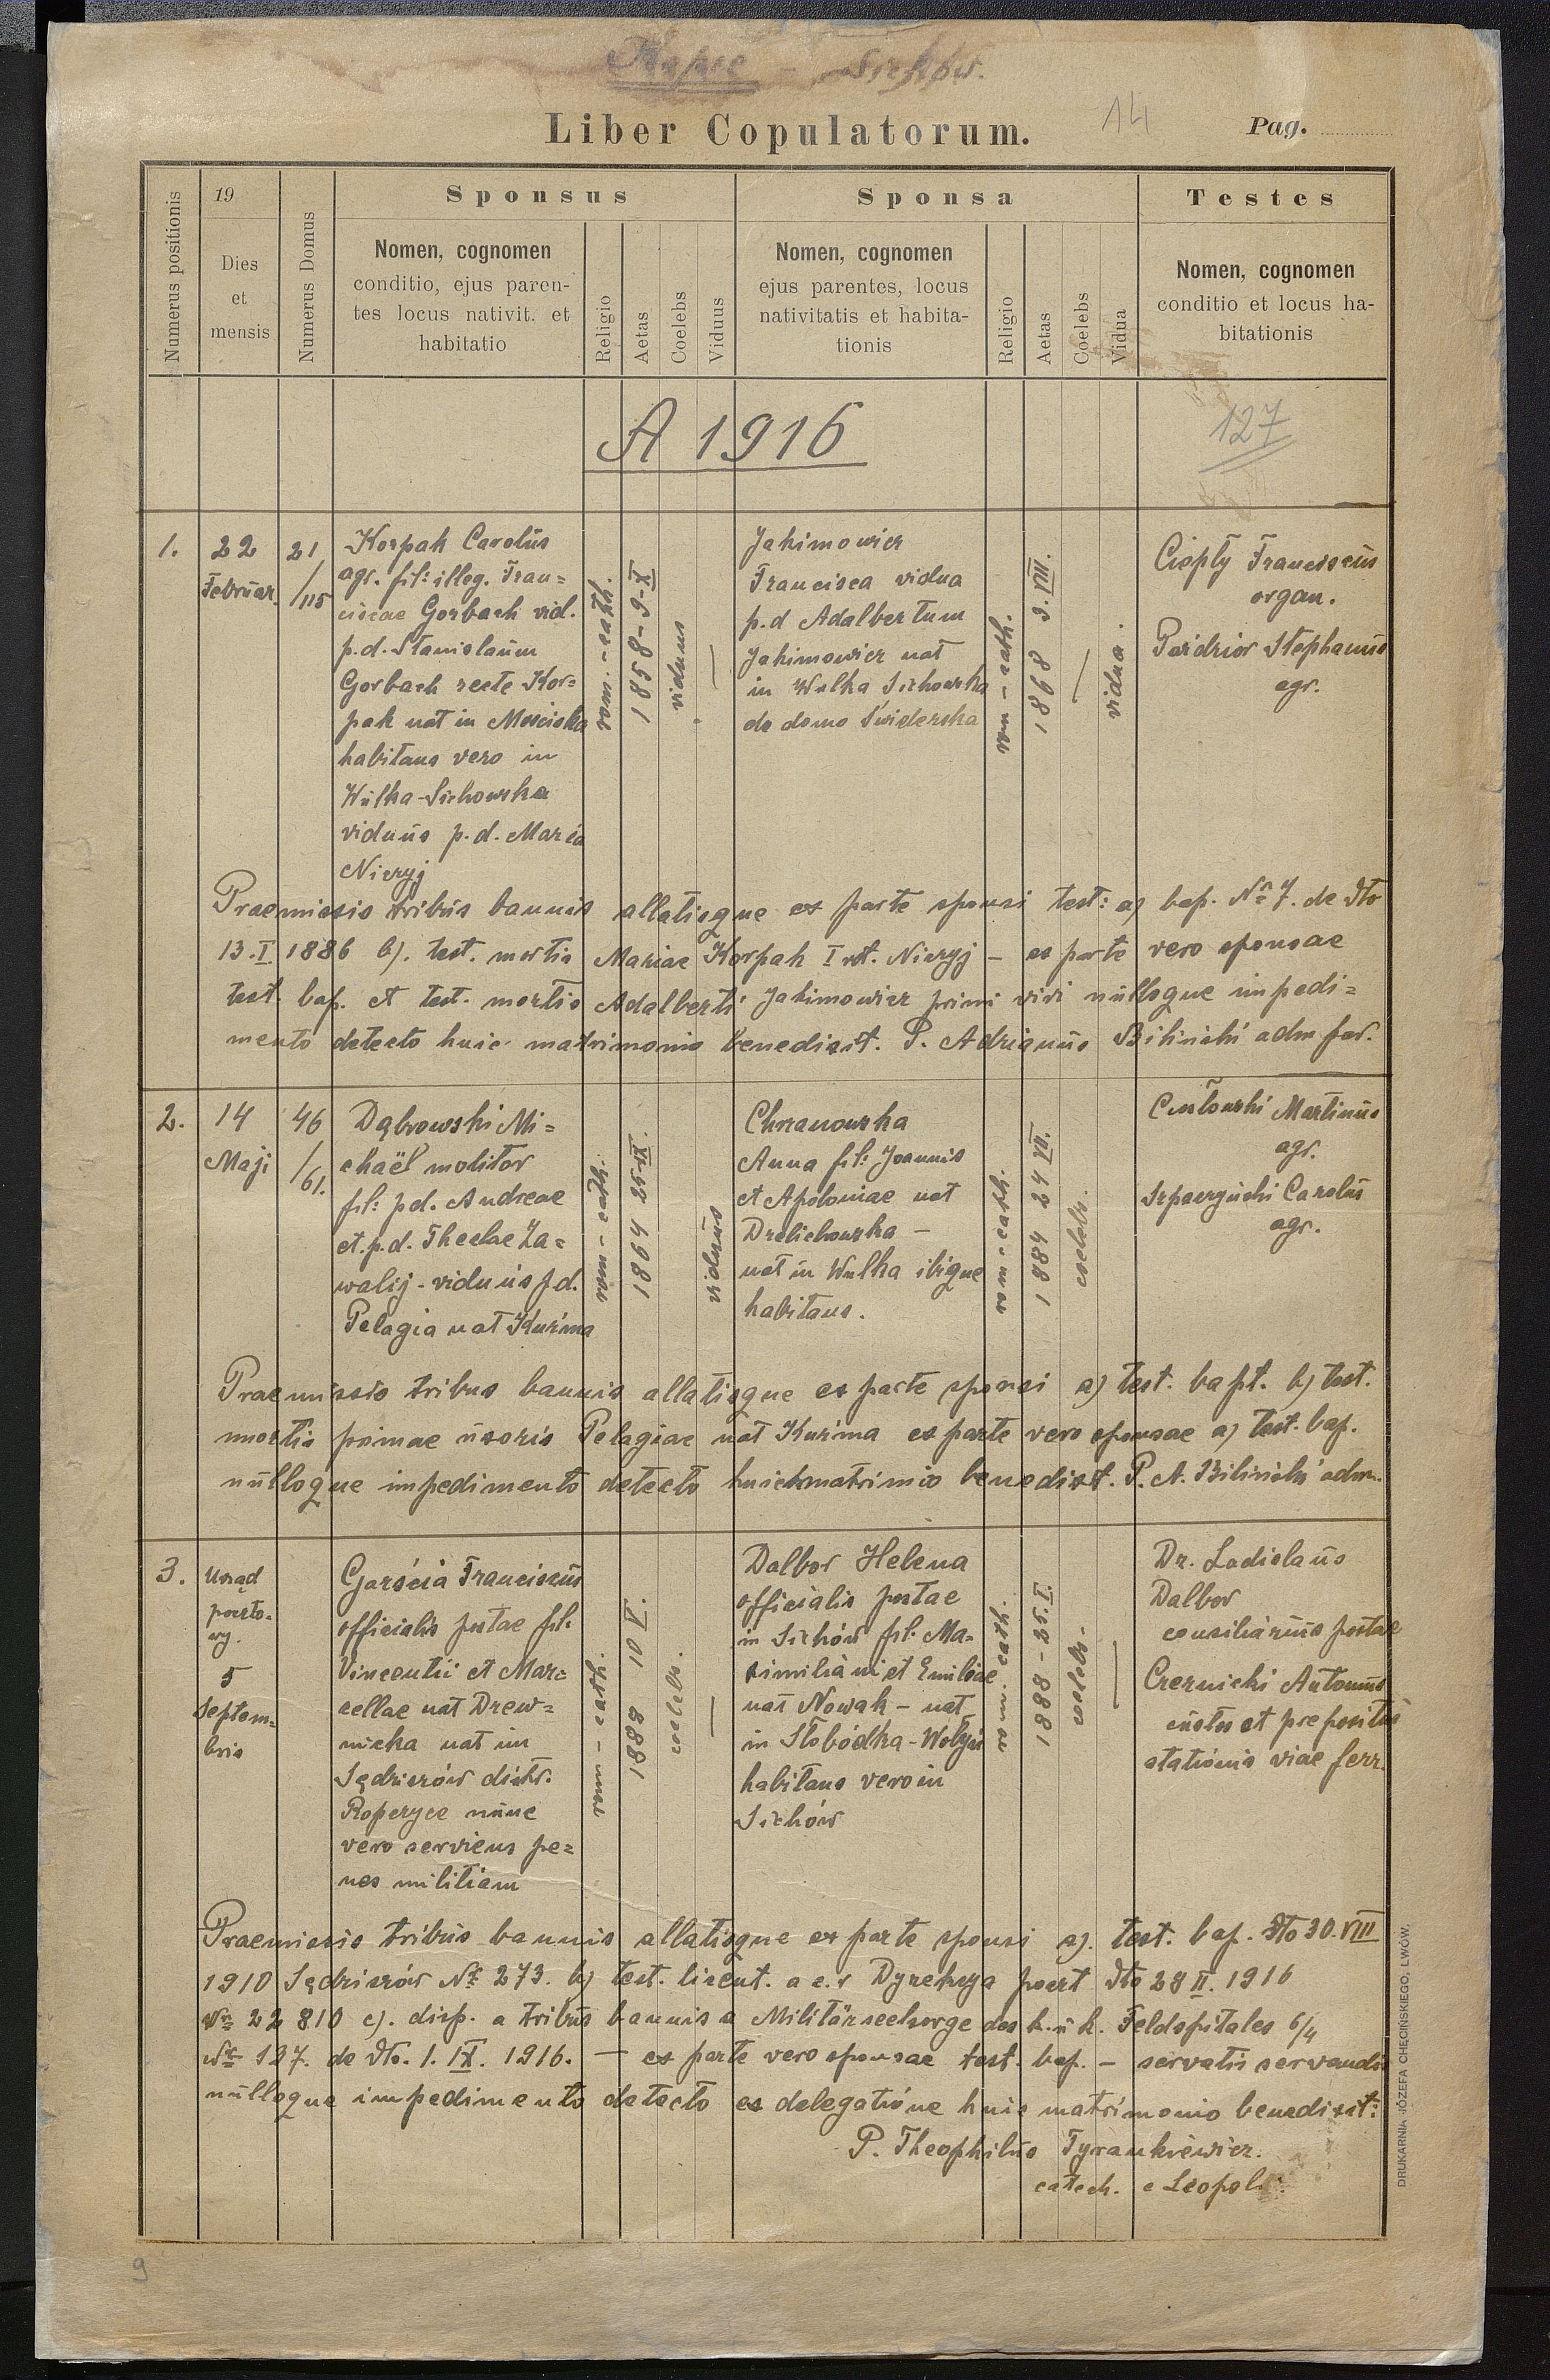 Sichów.
Liber Copulatorum.
14
Pag.
Numerus positionis
19
Dies
et
mensis
Numerus Domus
Sponsus
Nomen, cognomen
conditio, ejus paren-
tes locus nativit. et
habitatio
Religio
Aetas
Coelebs
Viduus
Sponsa
Nomen, cognomen
ejus parentes, locus
nativitatis et habita-
tionis
Religio
Aetas
Coelebs
Vidua
Testes
Nomen, cognomen
conditio et locus ha-
bitationis
A 1916
127
1.
22
Februar.
21
/115
Korpak Carolus
agr. fil: illeg. Fran=
ciscae Gorbach vid.
p.d. Stanislaum
Gorbach recte Kor=
pak nat in Mosciska
habitans vero in
Wulka-Sichowska
viduus p.d. Maria
Nieryj
rom.-cath.
1858-9-X
viduus
—
Jakimowicz
Francisca vidua
p.d Adalbertum
Jakimowicz nat
in Wulka Sichowska
de domo Świderska
rom-cath.
1868 9.VIII.
—
vidua.
Ciepły Franciscus
organ.
Paidzior Stephanus
agr.
Praemissis tribus bannis allatisque ex parte sponsi test: a) bap. No 7. de dto
13.I 1886 b). test. mortis Mariae Korpak I vt. Nieryj – ex parte vero sponsae
test. bap. et test. mortis Adalberti Jakimowicz primi viri nulloque impedi=
mento detecto huic matrimonio benedixit. P. Adrianus Biliński adm par.
2.
14
Maji
46
/61.
Dąbrowski Mi=
chaël molitor
fil: p.d. Andreae
et.p.d. Theclae Za=
walij-viduus p.d.
Pelagia nat Kuźma
rom-cath.
1864 25-IX.
viduus
Chrzanowska
Anna fil: Joannis
et Apoloniae nat
Drelichowska –
nat in Wulka ibique
habitans.
rom-cath.
1884 24 VII.
coelebs.
Martinus
agr.
Carolus
agr.
Praemissis tribus bannis allatisque ex parte sponsi a) test. bapt. b) test.
mortis primae uxoris Pelagiae nat Kuźma ex parte vero sponsae a) test. bap.
nulloque impedimento detecto huic matrimio benedixt. P. A. Biliński adm.
3.
Urząd
poczto-
wy.
5
Septem-
bris
Garścia Franciscus
officialis postae fil.
Vincentii et Mar=
cellae nat Drew=
nicka nat in
Sędziszów distr.
Ropczyce nunc
vero serviens pe=
nes militiam
rom-cath.
1888 10 V.
coelebs.
—
Dalbor Helena
officialis postae
in Sichów fil. Ma=
ximiliani et Emiliae
nat Nowak – nat
in Słobódka-Wołyń
habitans vero in
Sichów
rom. cath.
1888-25.I.
coelebs-
—
Dr. Ladislaus
Dalbor
consiliarius postae
Czernicki Antonius
custos et prepositus
stationis viae ferr.
Praemissis tribus bannis allatisque ex parte sponsi a). test. bap. dto 30.VIII
1910 Sędziszów No 273. b) test. licent. a c.k Dyrekcya poczt dto 28 II. 1916
No 22 810 c). disp. a tribus bannis a Militärseelsorge des k.u k. Feldspitales 6/4
No 127. de dto. 1. IX. 1916. — ex parte vero sponsae test. bap. – servatis servandis
nulloque impedimento detecto ex delegatione huic matrimonio benedixit:
P. Theophilus Tyrankiewicz.
catech. e Leopoli
9
DRUKARNIA JÓZEFA CHĘCIŃSKIEGO, LWÓW.